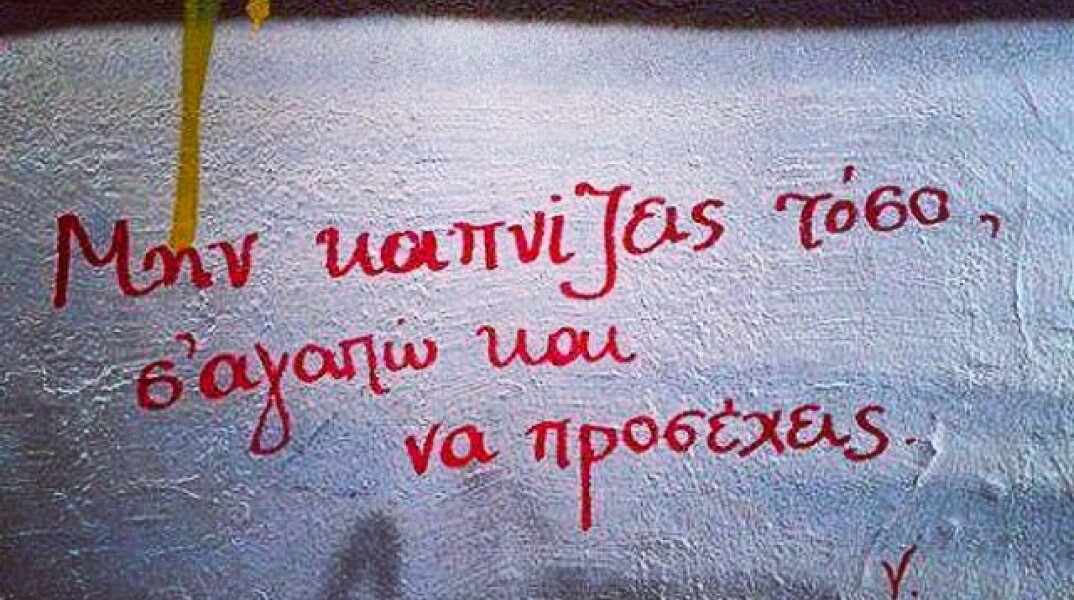 Μην καπνίζεις τόσο,
σ'αγαπώ και
να προσέχεις.
γ.